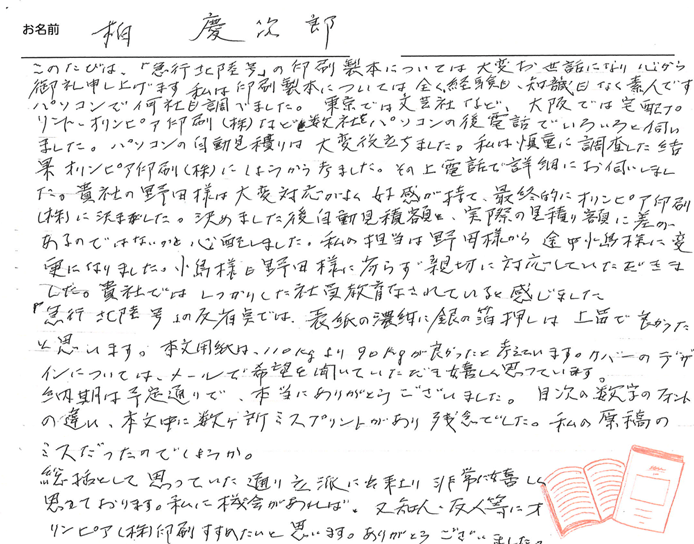 お名前 柏 慶次郎
このたびは、「急行北陸号」の印刷製本については大変お世話になり心から
御礼申し上げます 私は印刷製本については全く経験も、知識もなく素人です
パソコンで何社も調べました。東京では文芸社など、大阪では宅配プ
リント・オリンピア印刷(株)など数社をパソコンの後電話でいろいろと伺い
ました。パソコンの自動見積りは大変役立ちました。私は慎重に調査した結
果オリンピア印刷(株)にしようか考ました。その上電話で詳細にお伺いしまし
た。貴社の野田様は大変対応がよく好感が持て、最終的にオリンピア印刷
(株)に決ました。決めました後自動見積額と、実際の見積り額に差が
あるのではないかと心配しました。私の担当は野田様から途中小島様に変
更になりました。小島様も野田様に劣らず親切に対応していただきま
した。貴社ではしっかりした社員教育なされていると感じました
「急行北陸号」の反省点では、表紙の濃紺に銀の箔押しは上品で良かった
と思います。本文用紙は、110kgより90kgが良かったと考えています。カバーのデザ
インについては、メールで希望を聞いていただき嬉しく思っています。
納期は予定通りで、本当にありがとうございました。目次の数字のフォント
の違い、本文中に数ヶ所ミスプリントがあり残念でした。私の原稿の
ミスだったのでしょうか。
総括として思っていた通り立派に出来上り非常に嬉しく
思っております。私に機会があれば、又知人・友人等にオ
リンピア(株)印刷すすめたいと思います。ありがとうございました。